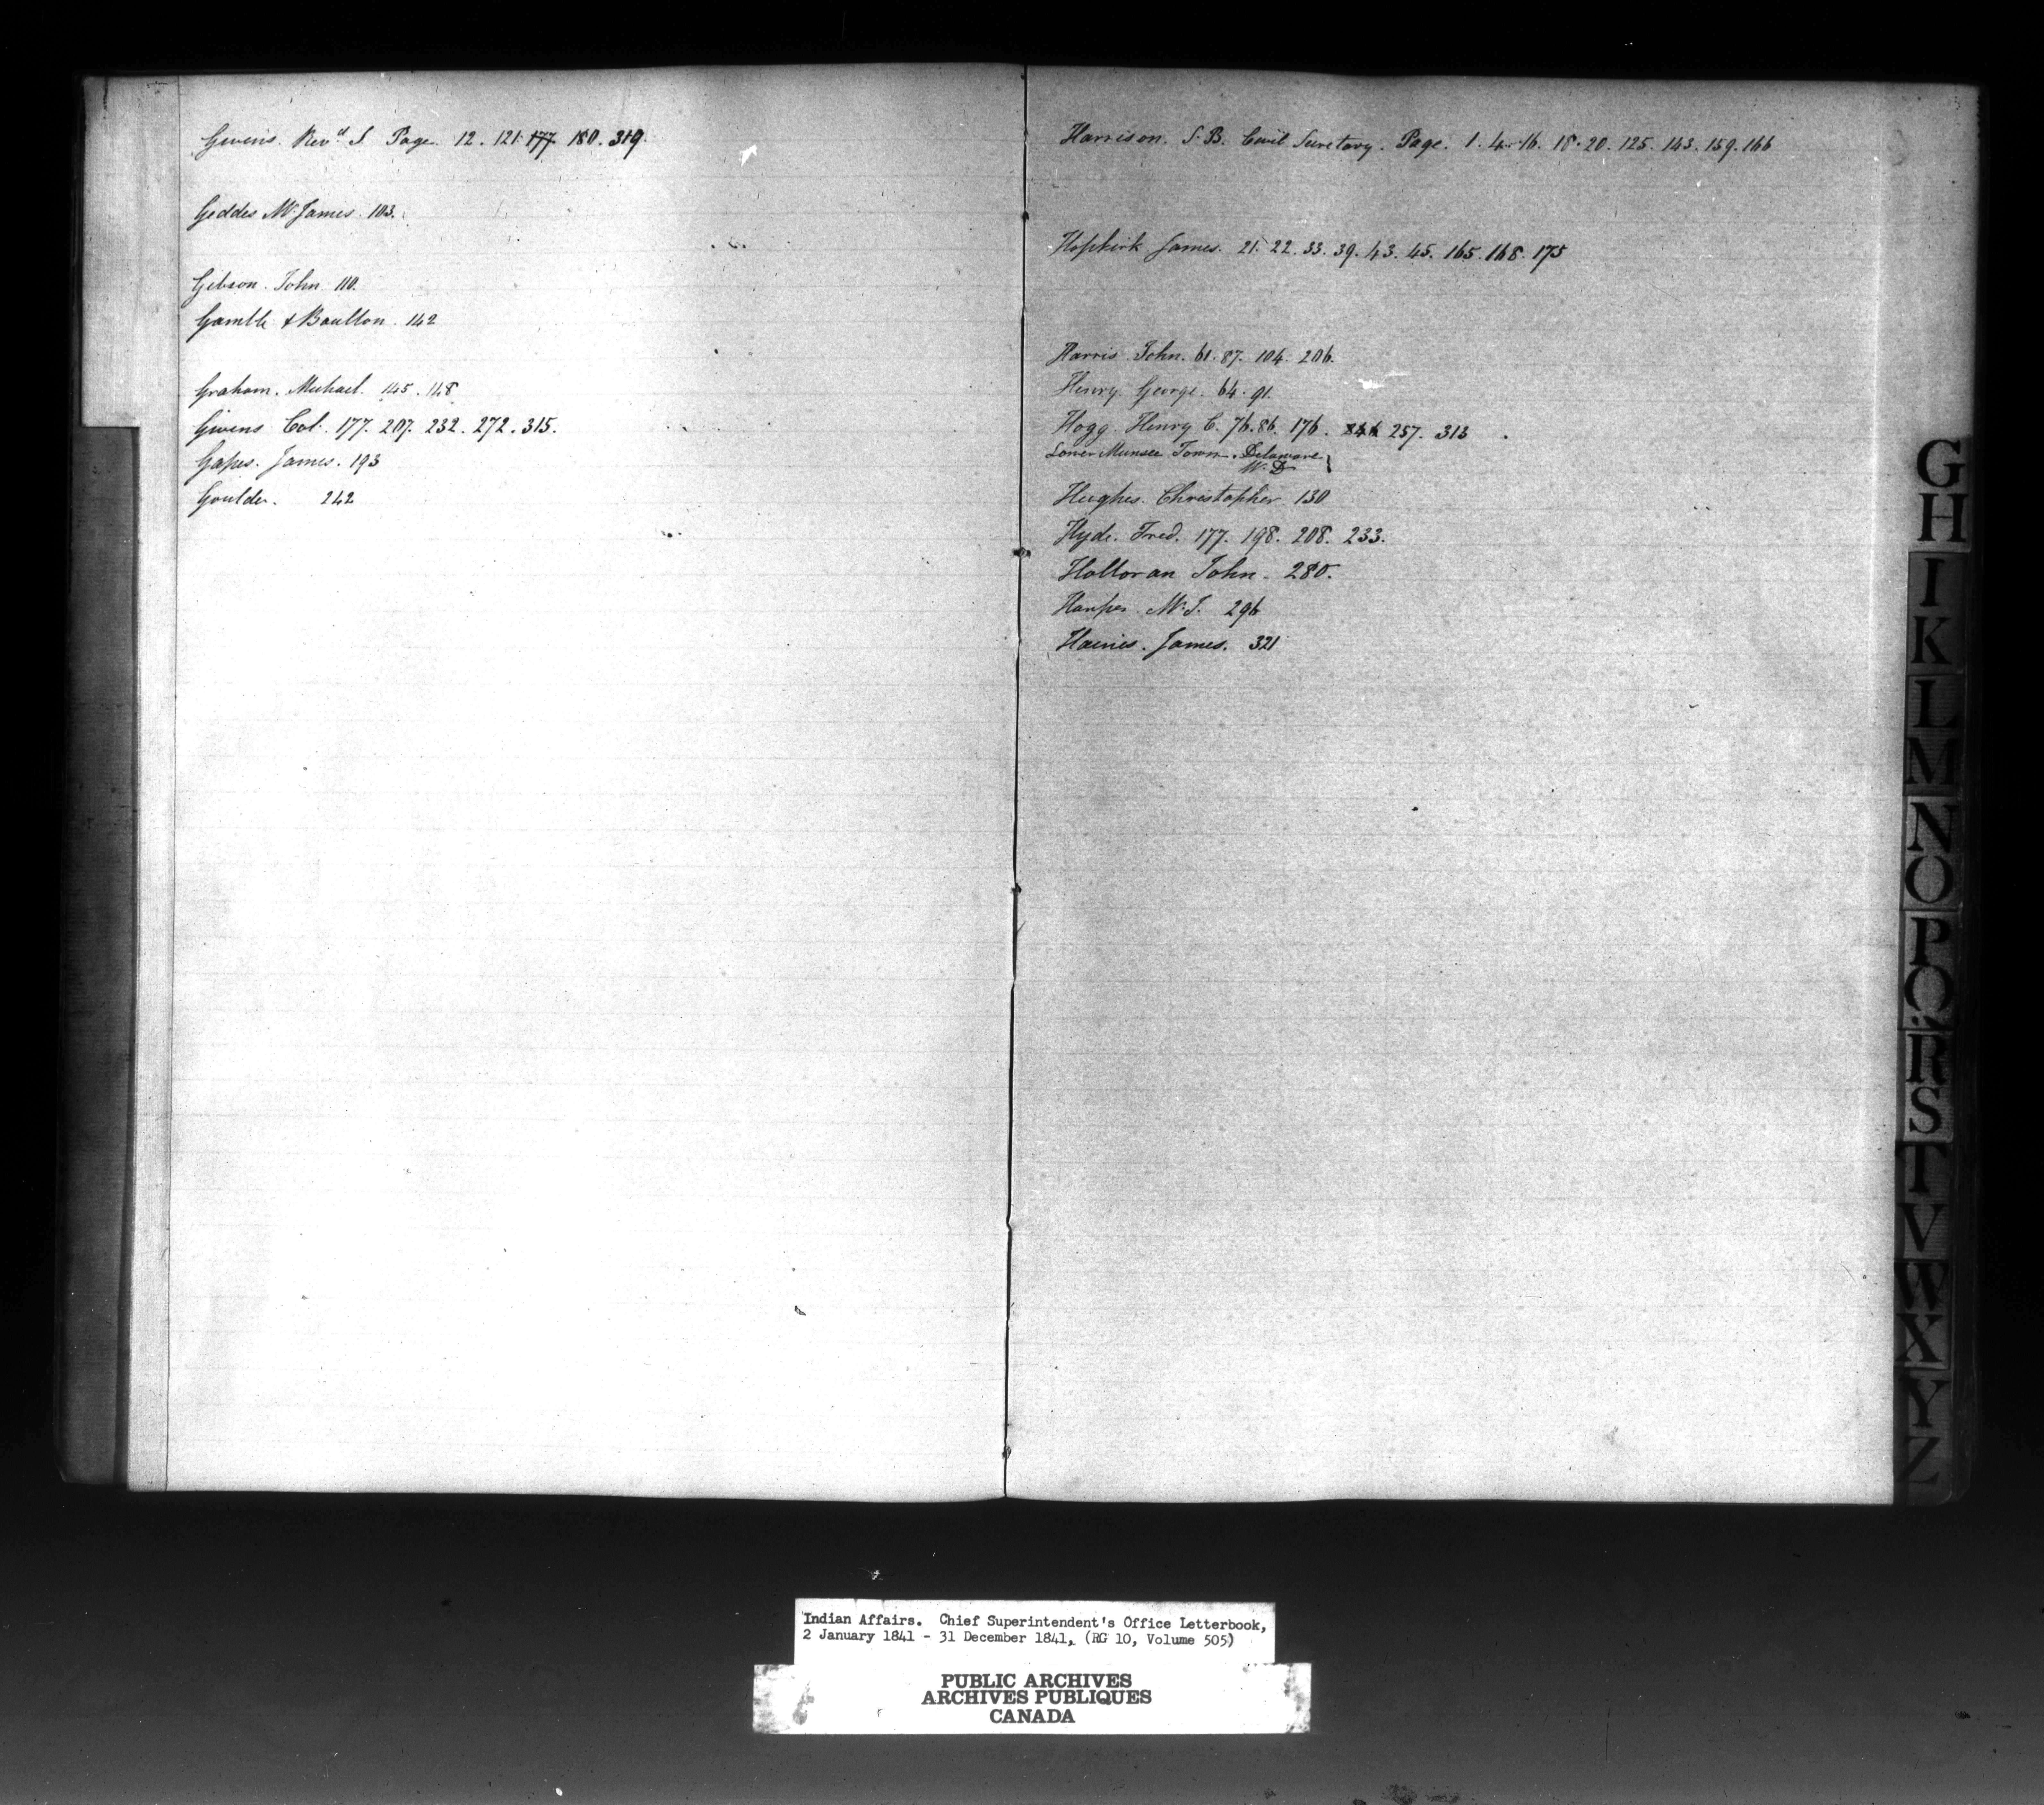 Givens. Revd S. Page. 12. 121. 177. 180. 319.
Geddes Mr James. 103.
Gibson. John. 110.
Gamble & Boulton. 142
Graham. Michael. 145. 148
Givens Col. 177. 207. 232. 272. 315.
Gapes. James. 193
Goulder. 242
Harrison. S. B. Civil Secretary. Page. 1. 4. 16. 18. 20. 125. 143. 159. 166
Hopkirk James. 21. 22. 33. 39. 43. 45. 165. 168. 175
Harris John. 61. 87. 104. 206.
Henry George. 64. 91.
Hogg. Henry C. 76. 86. 176. 257. 313
Lower Munsee Town. Delaware
W. D
Hughes. Christopher 130
Hyde. Fred. 177. 198. 208. 233.
Halloran John. 280.
Harper Mr J. 296
Haines. James. 321
G
H
I
K
L
M
N
O
P
Q
R
S
T
V
W
X
Y
Z
Indian Affairs. Chief Superintendent's Office Letterbook,
2 January 1841 - 31 December 1841, (RG 10, Volume 505)
PUBLIC ARCHIVES
ARCHIVES PUBLIQUES
CANADA